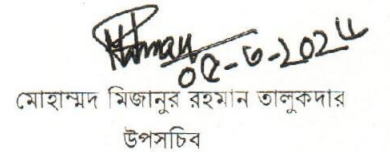 ০৫-৩-২০২৪
মোহাম্মদ মিজানুর রহমান তালুকদার
উপসচিব